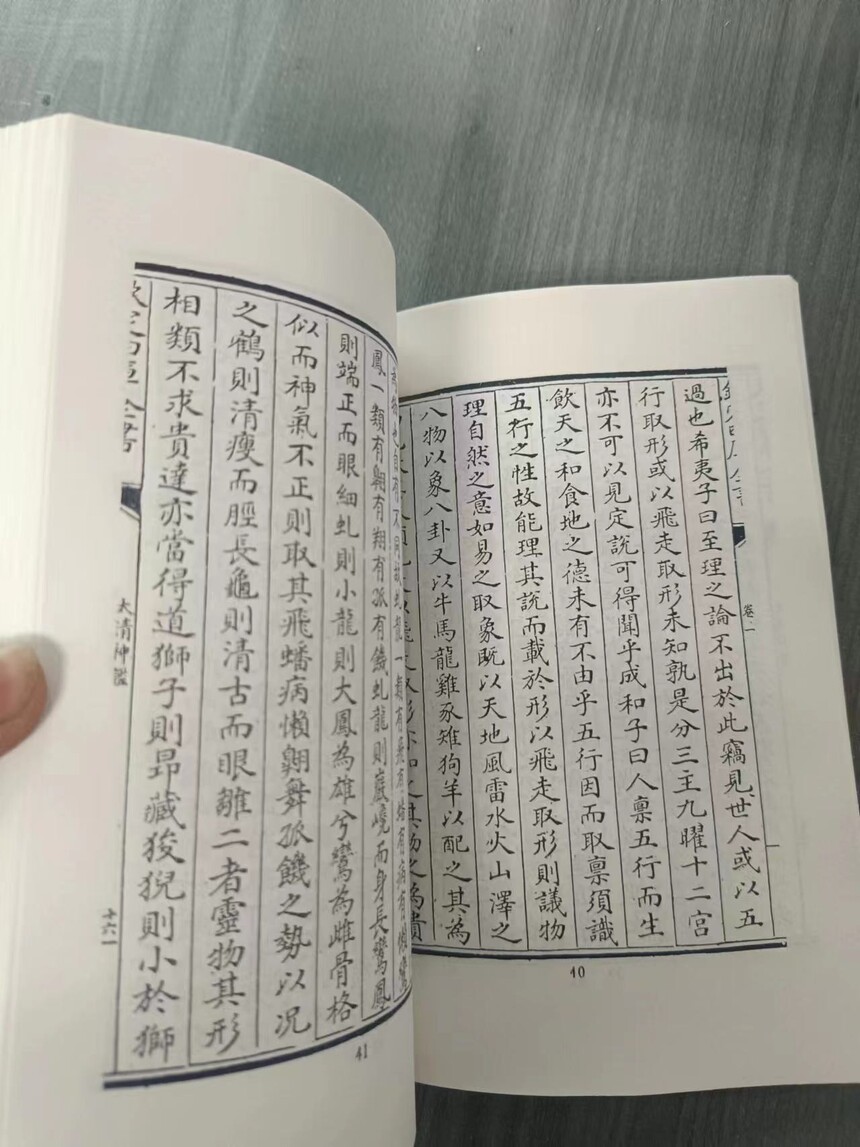 過也希夷子曰至理之論不出於此竊見世人或以五
行取形或以飛走取形未知孰是分三主九曜十二宮
亦不可以見定說可得聞乎成和子曰人禀五行而生
飲天之和食地之德未有不由乎五行因而取禀須識
五行之性故能理其說而載於形以飛走取形則議物
理自然之意如易之取象既以天地風雷水火山澤之
八物以象八卦又以牛馬龍雞豕雉狗羊以配之其為
卷一
40
鳳一類有翱有翔有孤有饑虬龍則巖嶢而身長鸞鳳
則端正而眼細虬則小龍則大鳳為雄兮鸞為雌骨格
似而神氣不正則取其飛蟠病懶翱舞孤饑之勢以况
之鶴則清瘦而脛長龜則清古而眼雛二者靈物其形
相類不求貴達亦當得道獅子則昂藏狻猊則小於獅
太清神鑑
十六
41